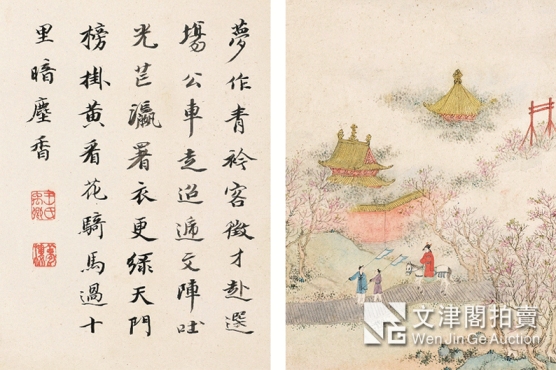 夢作青衿客徵才赴選
塲公車走迢遞文陣吐
光芒瀛署衣更綠天門
榜掛黃看花騎馬過十
里暗塵香
文津閣拍賣
Wen Jin Ge Auction